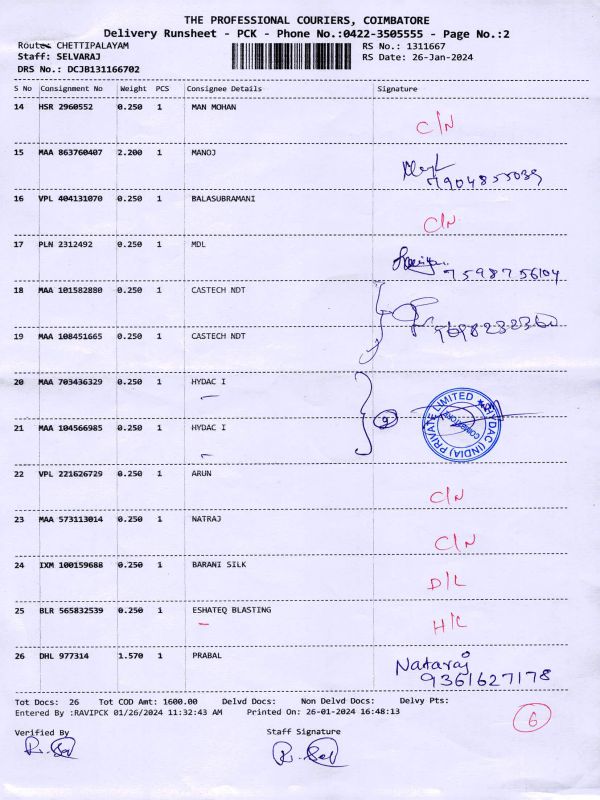 THE PROFESSIONAL COURIERS, COIMBATORE
Delivery Runsheet - PCK - Phone No.:0422-3505555 - Page No.:2
Route: CHETTIPALAYAM RS No.: 1311667
Staff: SELVARAJ RS Date: 26-Jan-2024
DRS No.: DCJB131166702
S No Consignment No Weight PCS Consignee Details Signature
14 HSR 2960552 0.250 1 MAN MOHAN
C/N
15 MAA 863760407 2.200 1 MANOJ
16 VPL 404131070 0.250 1 BALASUBRAMANI
C/N
17 PLN 2312492 0.250 1 MDL
7598756104
18 MAA 101582880 0.250 1 CASTECH NDT
9698232360
19 MAA 108451665 0.250 1 CASTECH NDT
20 MAA 703436329 0.250 1 HYDAC I
HYDAC (INDIA) PRIVATE LIMITED
COIMBATORE
21 MAA 104566985 0.250 1 HYDAC I
22 VPL 221626729 0.250 1 ARUN
C/N
23 MAA 573113014 0.250 1 NATRAJ
C/N
24 IXM 100159688 0.250 1 BARANI SILK
D/L
25 BLR 565832539 0.250 1 ESHATEQ BLASTING
H/C
26 DHL 977314 1.570 1 PRABAL
Nataraj
9361627178
Tot Docs: 26 Tot COD Amt: 1600.00 Delvd Docs: Non Delvd Docs: Delvy Pts:
Entered By :RAVIPCK 01/26/2024 11:32:43 AM Printed On: 26-01-2024 16:48:13
6
Verified By Staff Signature